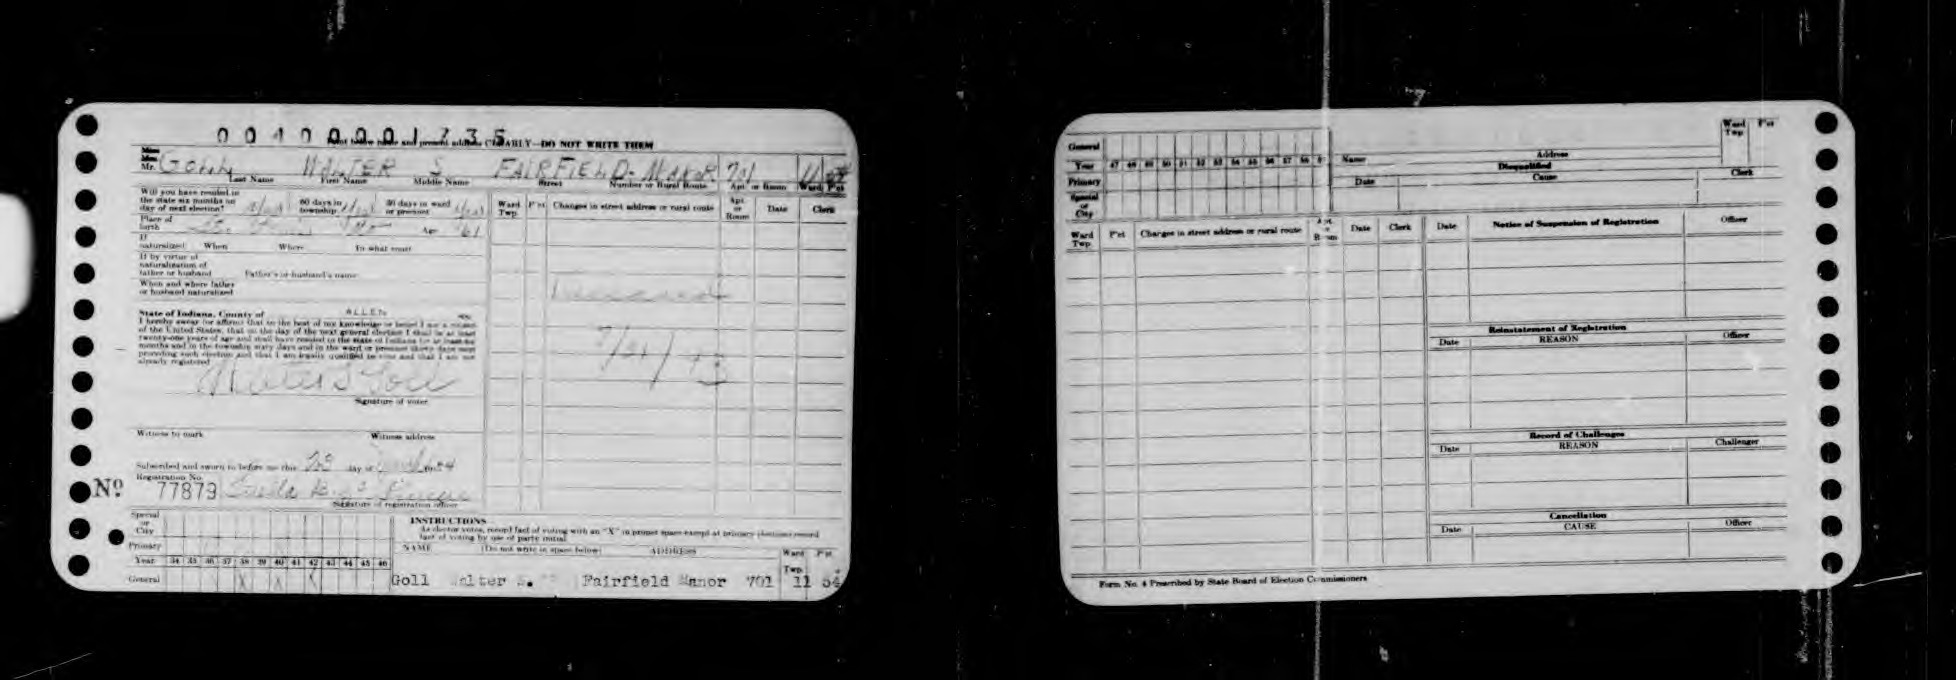 0040001735
Print below name and present address CLEARLY—DO NOT WRITE THEM
Miss
Mrs.
Mr. GOLL WALTER S FAIRFIELD-MANOR 701 11 54
Last Name First Name Middle Name Street Number or Rural Route Apt. or Room Ward P'ct
Will you have resided in the state six months on day of next election? 60 days in township 30 days in ward or precinct
Place of birth Age 61
If naturalized When Where In what court
If by virtue of naturalization of father or husband Father's or husband's name
When and where father or husband naturalized
State of Indiana, County of ALLEN ss:
I hereby swear (or affirm) that to the best of my knowledge or belief I am a citizen
of the United States, that on the day of the next general election I shall be at least
twenty-one years of age and shall have resided in the state of Indiana for at least six
months and in the township sixty days and in the ward or precinct thirty days next
preceding such election and that I am legally qualified to vote and that I am not
already registered
Walter S Goll
Signature of voter
Witness to mark Witness address
Subscribed and sworn to before me this day of
Registration No.
No 77879
Signature of registration officer
Ward Twp. P'ct Changes in street address or rural route Apt. or Room Date Clerk
Deceased
Special or City
Primary
Year 34 35 36 37 38 39 40 41 42 43 44 45 46
General X X X
INSTRUCTIONS
As elector votes, record fact of voting with an "X" in proper space except at primary elections record
fact of voting by use of party initial
NAME (Do not write in space below) ADDRESS Ward Twp. P'ct
Goll Walter S. Fairfield Manor 701 11 54
General
Year 47 48 49 50 51 52 53 54 55 56 57 58 59
Primary
Special or City
Name Address Ward Twp. P'ct
Disqualified
Date Cause Clerk
Ward Twp. P'ct Changes in street address or rural route Apt. or Room Date Clerk
Date Notice of Suspension of Registration Officer
Reinstatement of Registration
Date REASON Officer
Record of Challenges
Date REASON Challenger
Cancellation
Date CAUSE Officer
Form No. 4 Prescribed by State Board of Election Commissioners